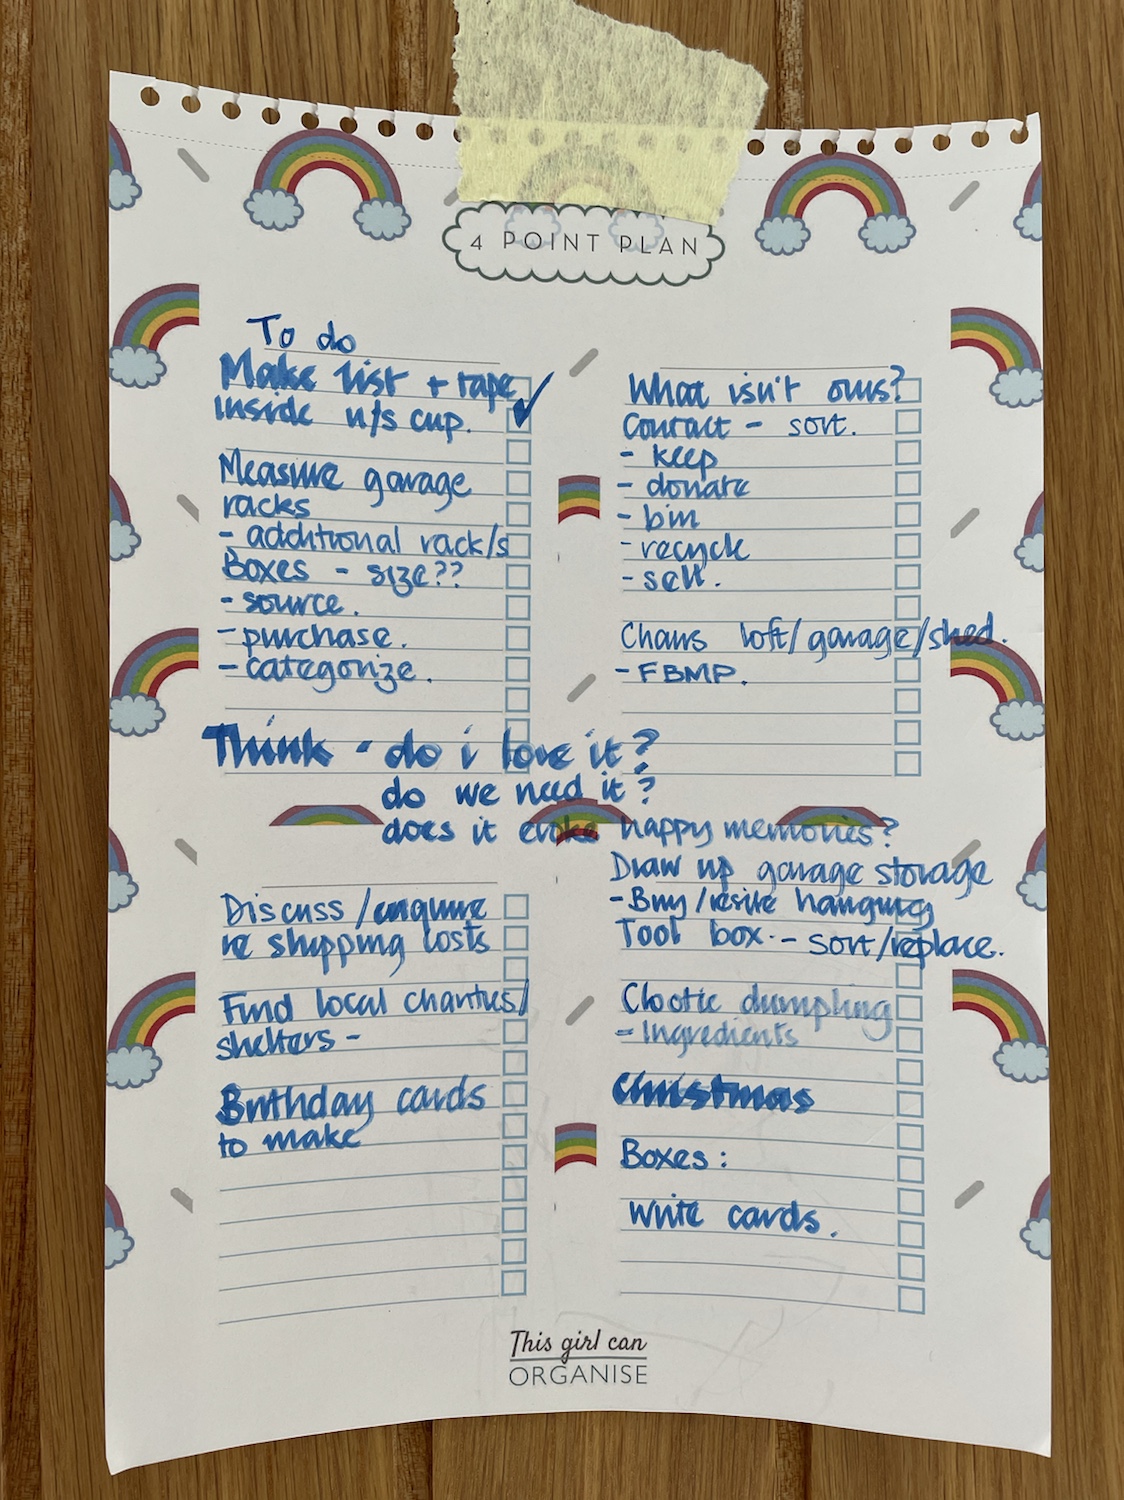 4 POINT PLAN
To do
Make list + tape
Inside u/s cup.
Measure garage
racks
- additional rack/s
Boxes - size??
- source.
- purchase.
- categorize.
What isn't ours?
Contact - sort.
- keep
- donate
- bin
- recycle
- sell.
Chairs loft/garage/shed.
- FBMP.
Think - do i love it?
do we need it?
does it evoke happy memories?
Discuss/enquire
re shipping costs
Find local charities/
shelters -
Birthday cards
to make
Draw up garage storage
- Buy/resite hanging
Tool box - sort/replace.
Clootie dumpling
- Ingredients
Christmas
Boxes:
write cards.
This girl can
ORGANISE